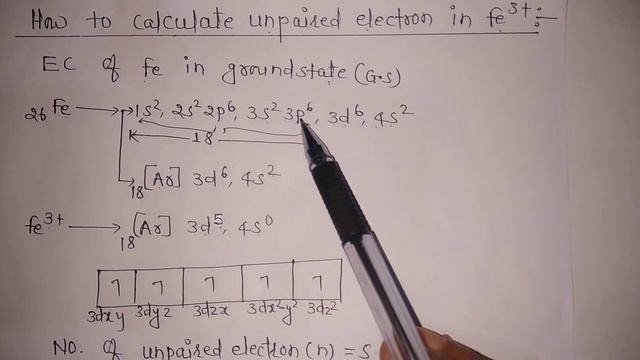 How to calculate unpaired electron in fe³⁺:-
EC of fe in groundstate (G.S)
₂₆Fe → 1s², 2s² 2p⁶, 3s² 3p⁶, 3d⁶, 4s²
18
₁₈[Ar] 3d⁶, 4s²
fe³⁺ → ₁₈[Ar] 3d⁵, 4s⁰
1 1 1 1 1
3dxy 3dyz 3dzx 3dx²y² 3dz²
No. of unpaired electron (n) = 5